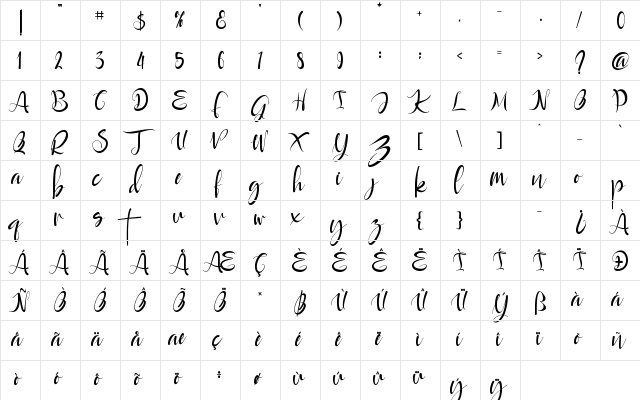 ! " # $ % & ' ( ) * + , - . / 0
1 2 3 4 5 6 7 8 9 : ; < = > ? @
A B C D E F G H I J K L M N O P
Q R S T U V W X Y Z [ \ ] ^ _ `
a b c d e f g h i j k l m n o p
q r s t u v w x y z { } ¯ ¿ À
Á Â Ã Ä Å Æ Ç È É Ê Ë Ì Í Î Ï Ð
Ñ Ò Ó Ô Õ Ö × Ø Ù Ú Û Ü Ý ß à á
â ã ä å æ ç è é ê ë ì í î ï ð ñ
ò ó ô õ ö ÷ ø ù ú û ü ý ÿ